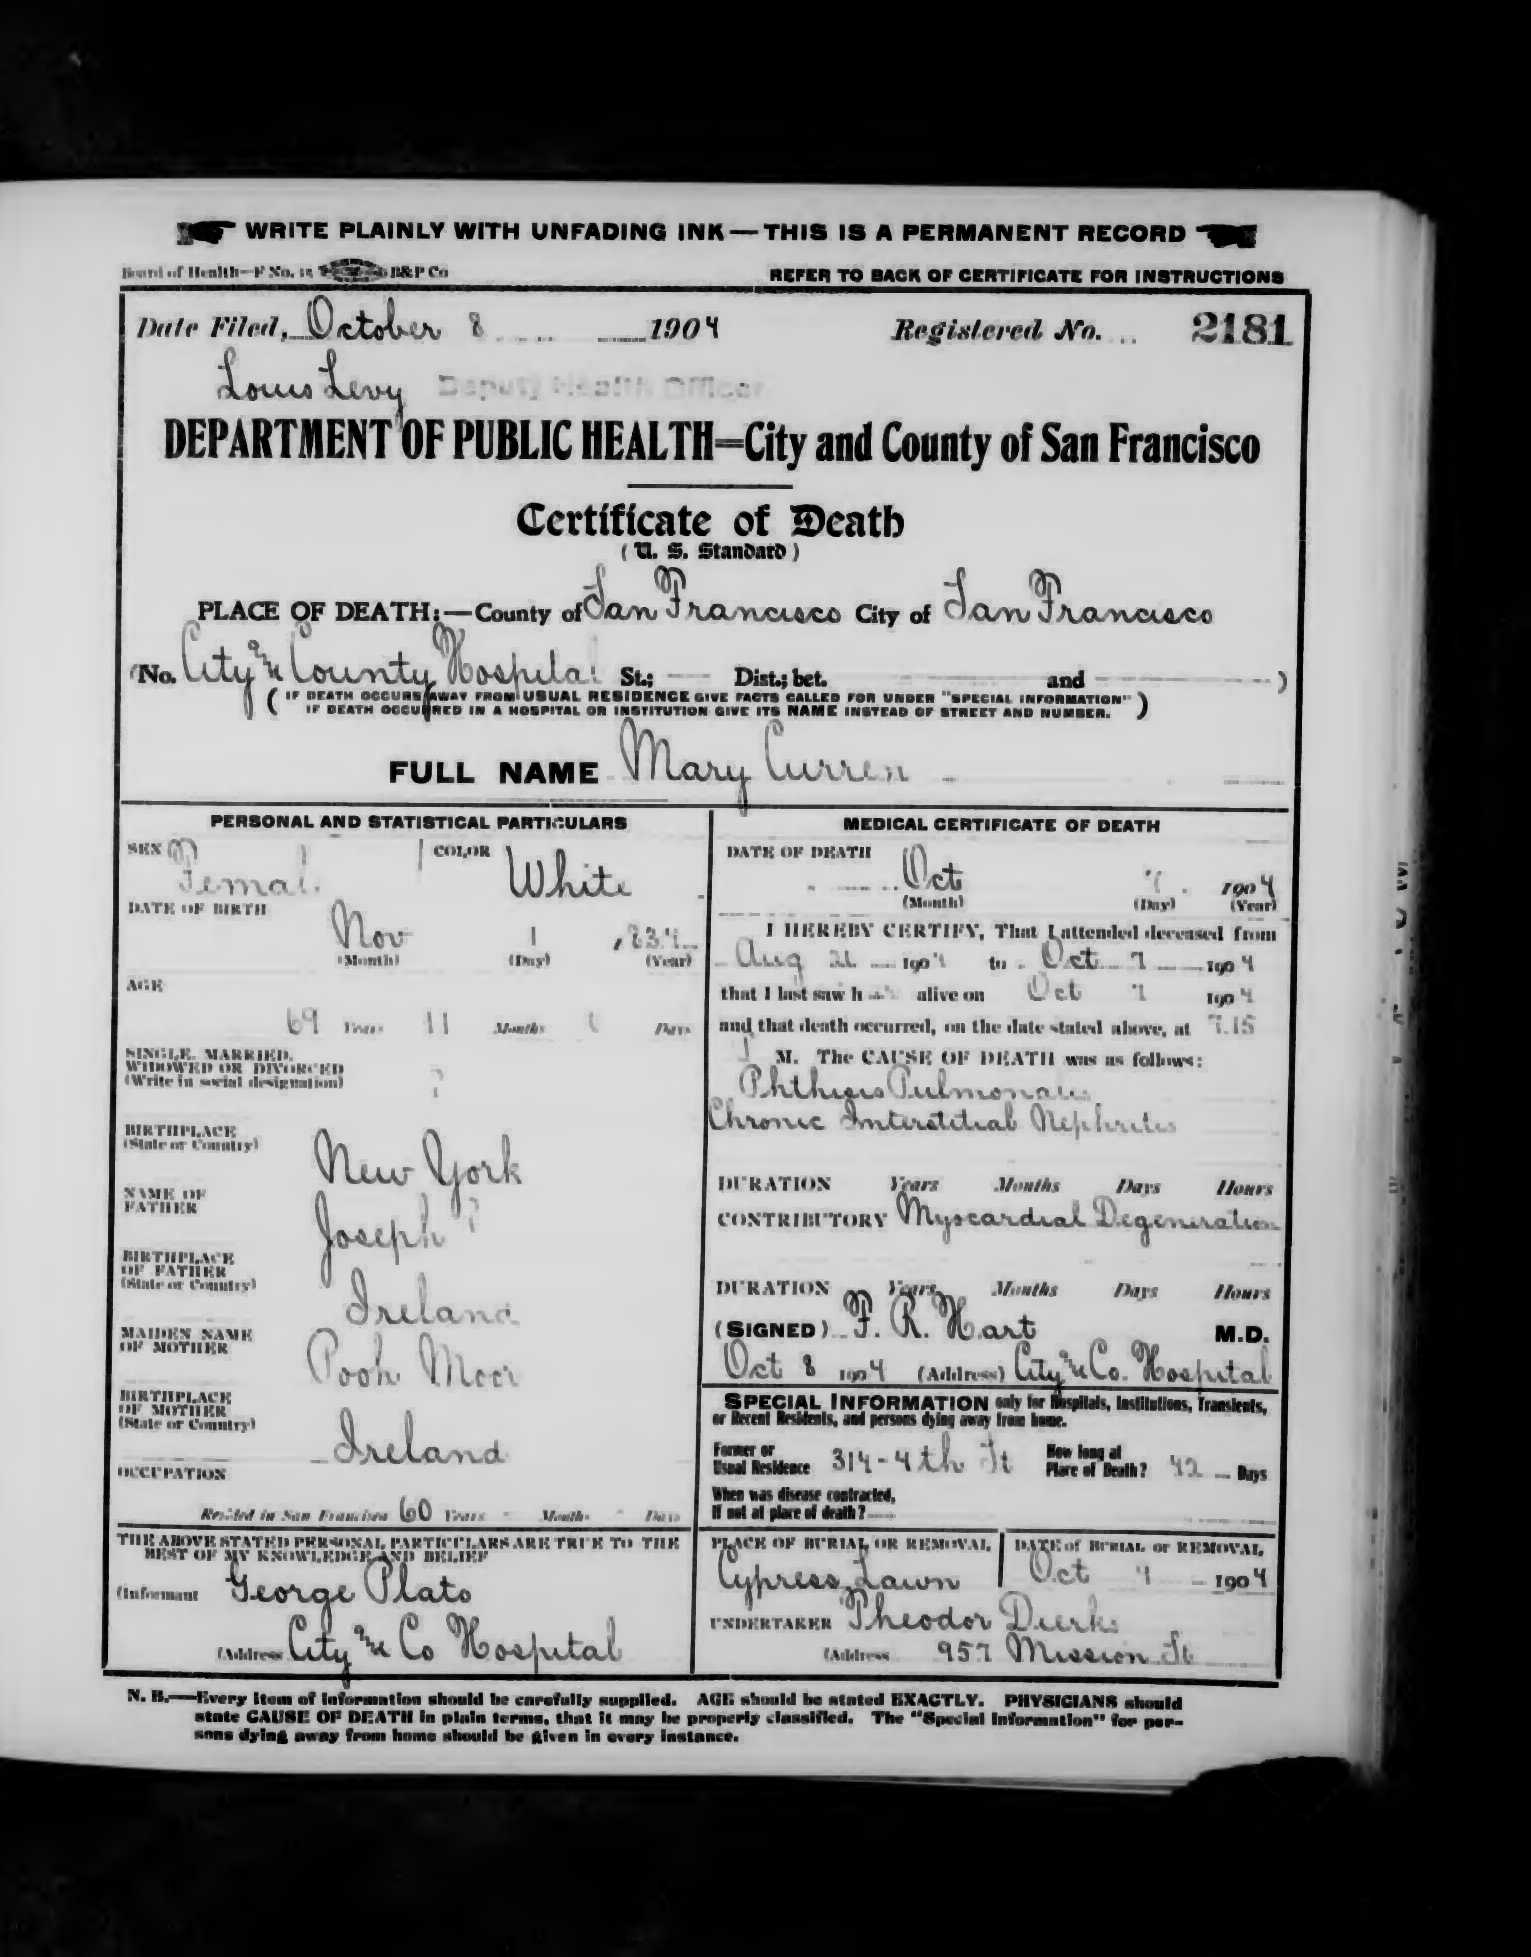 WRITE PLAINLY WITH UNFADING INK — THIS IS A PERMANENT RECORD
Board of Health—F No. 15 B&P Co
REFER TO BACK OF CERTIFICATE FOR INSTRUCTIONS
Date Filed, October 8 1904 Registered No. 2181
Louis Levy Deputy Health Officer
DEPARTMENT OF PUBLIC HEALTH=City and County of San Francisco
Certificate of Death
(U. S. Standard)
PLACE OF DEATH:—County of San Francisco City of San Francisco
(No. City and County Hospital St.; Dist.; bet. and )
(IF DEATH OCCURS AWAY FROM USUAL RESIDENCE GIVE FACTS CALLED FOR UNDER "SPECIAL INFORMATION"
IF DEATH OCCURRED IN A HOSPITAL OR INSTITUTION GIVE ITS NAME INSTEAD OF STREET AND NUMBER.)
FULL NAME Mary Curren
PERSONAL AND STATISTICAL PARTICULARS
SEX Female COLOR White
DATE OF BIRTH
Nov 1
(Month) (Day) (Year)
AGE
69 Years 11 Months Days
SINGLE, MARRIED,
WIDOWED OR DIVORCED
(Write in social designation) ?
BIRTHPLACE
(State or Country) New York
NAME OF
FATHER Joseph ?
BIRTHPLACE
OF FATHER
(State or Country) Ireland
MAIDEN NAME
OF MOTHER
BIRTHPLACE
OF MOTHER
(State or Country) Ireland
OCCUPATION
Resided in San Francisco 60 Years Months Days
THE ABOVE STATED PERSONAL PARTICULARS ARE TRUE TO THE
BEST OF MY KNOWLEDGE AND BELIEF
(Informant George Plato
(Address City and Co Hospital
MEDICAL CERTIFICATE OF DEATH
DATE OF DEATH
Oct 7 1904
(Month) (Day) (Year)
I HEREBY CERTIFY, That I attended deceased from
Aug 1904 to Oct 7 1904
that I last saw h alive on Oct 7 1904
and that death occurred, on the date stated above, at 7.15
M. The CAUSE OF DEATH was as follows:
Phthisis Pulmonalis
Chronic Interstitial Nephritis
DURATION Years Months Days Hours
CONTRIBUTORY Myocardial Degeneration
DURATION Years Months Days Hours
(SIGNED) F. R. Hart M.D.
Oct 8 1904 (Address) City and Co. Hospital
SPECIAL INFORMATION only for Hospitals, Institutions, Transients,
or Recent Residents, and persons dying away from home.
Former or
Usual Residence 314-4th St How long at
Place of Death? 42 Days
When was disease contracted,
If not at place of death?
PLACE OF BURIAL OR REMOVAL DATE of BURIAL or REMOVAL
Cypress Lawn Oct 1904
UNDERTAKER Theodor Dierks
(Address 957 Mission St
N. B.—Every item of information should be carefully supplied. AGE should be stated EXACTLY. PHYSICIANS should
state CAUSE OF DEATH in plain terms, that it may be properly classified. The "Special Information" for per-
sons dying away from home should be given in every instance.